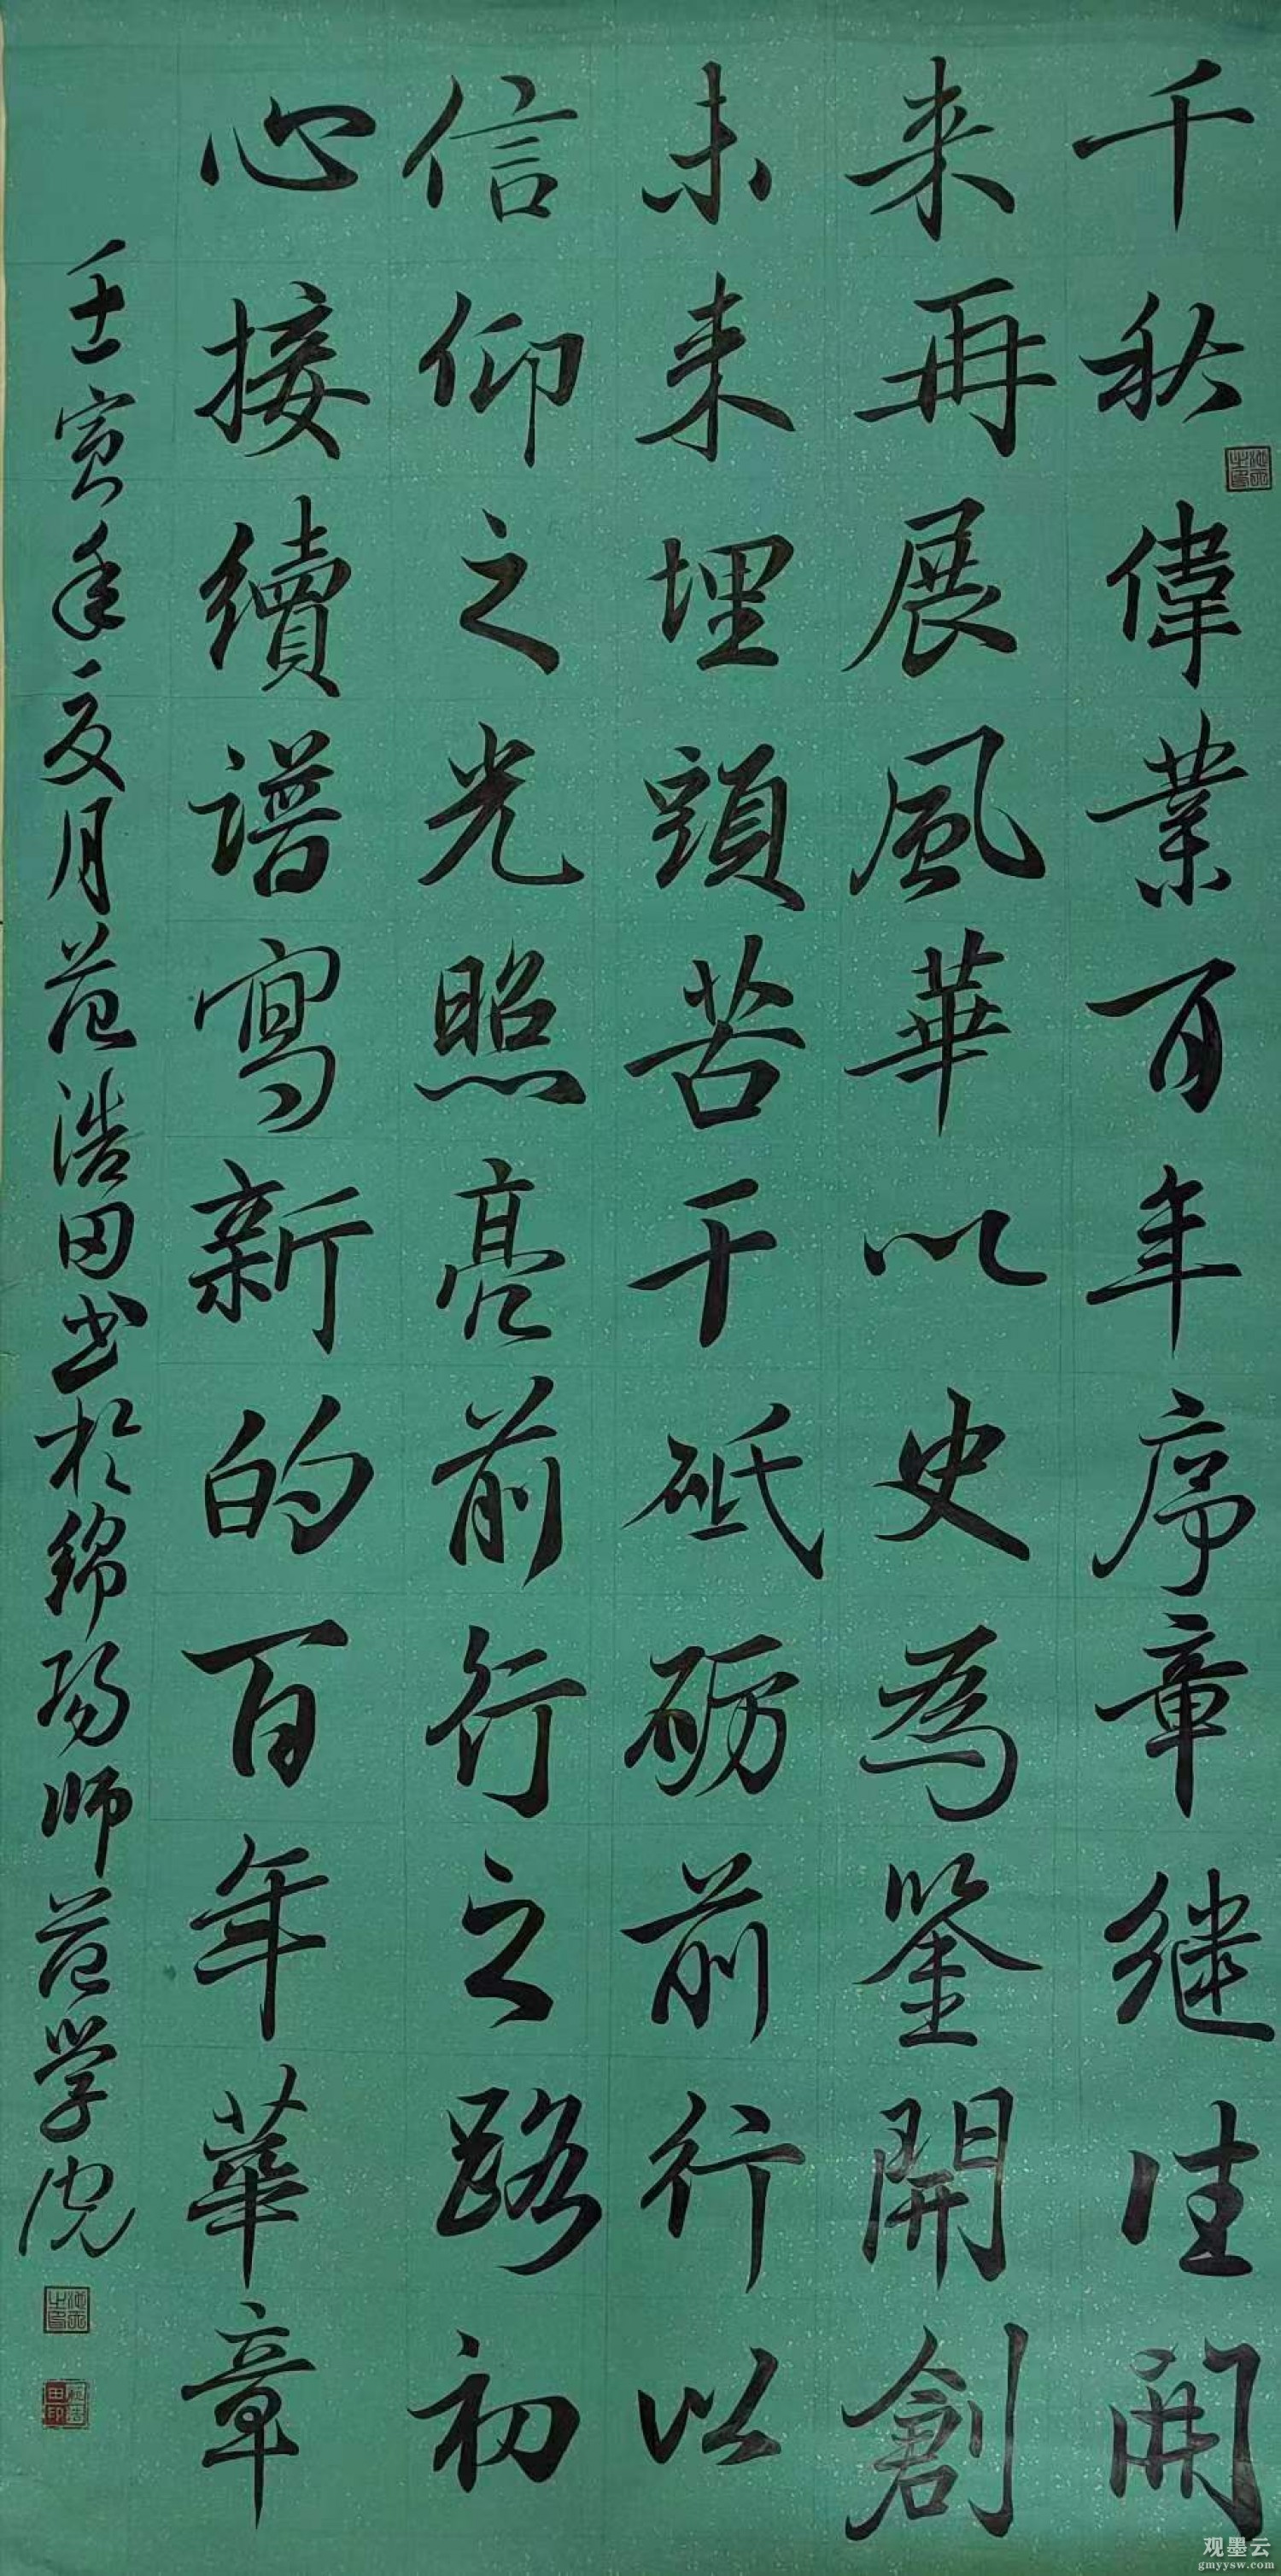 千秋偉業百年序章继往開
来再展風華以史為鉴開創
未来埋頭苦干砥砺前行以
信仰之光照亮前行之路初
心接續谱寫新的百年華章
壬寅年夏月范浩田书於绵阳师范学院
范浩田印
观墨云
gmyysw.com